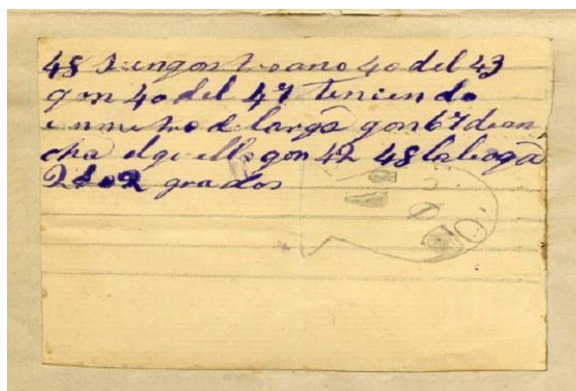 48 sungostroano 40 del 43
gon 40 del 47 teniendo
unmetro de larga gon 67 dean
cha elguello gon 42 48 laboga
2 o 2 grados